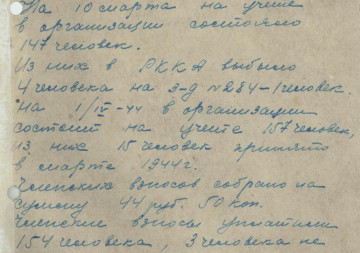 На 10 марта на учете
в организации состояло
147 человек.
Из них в РККА выбыло
4 человека на з-д №284-1 человек.
На 1/IV-44 в организации
состоит на учете 157 человек,
из них 15 человек принято
в марте 1944 г.
Членских взносов собрано на
сумму 44 руб. 50 коп.
Членские взносы уплатили
154 человека, 3 человека не